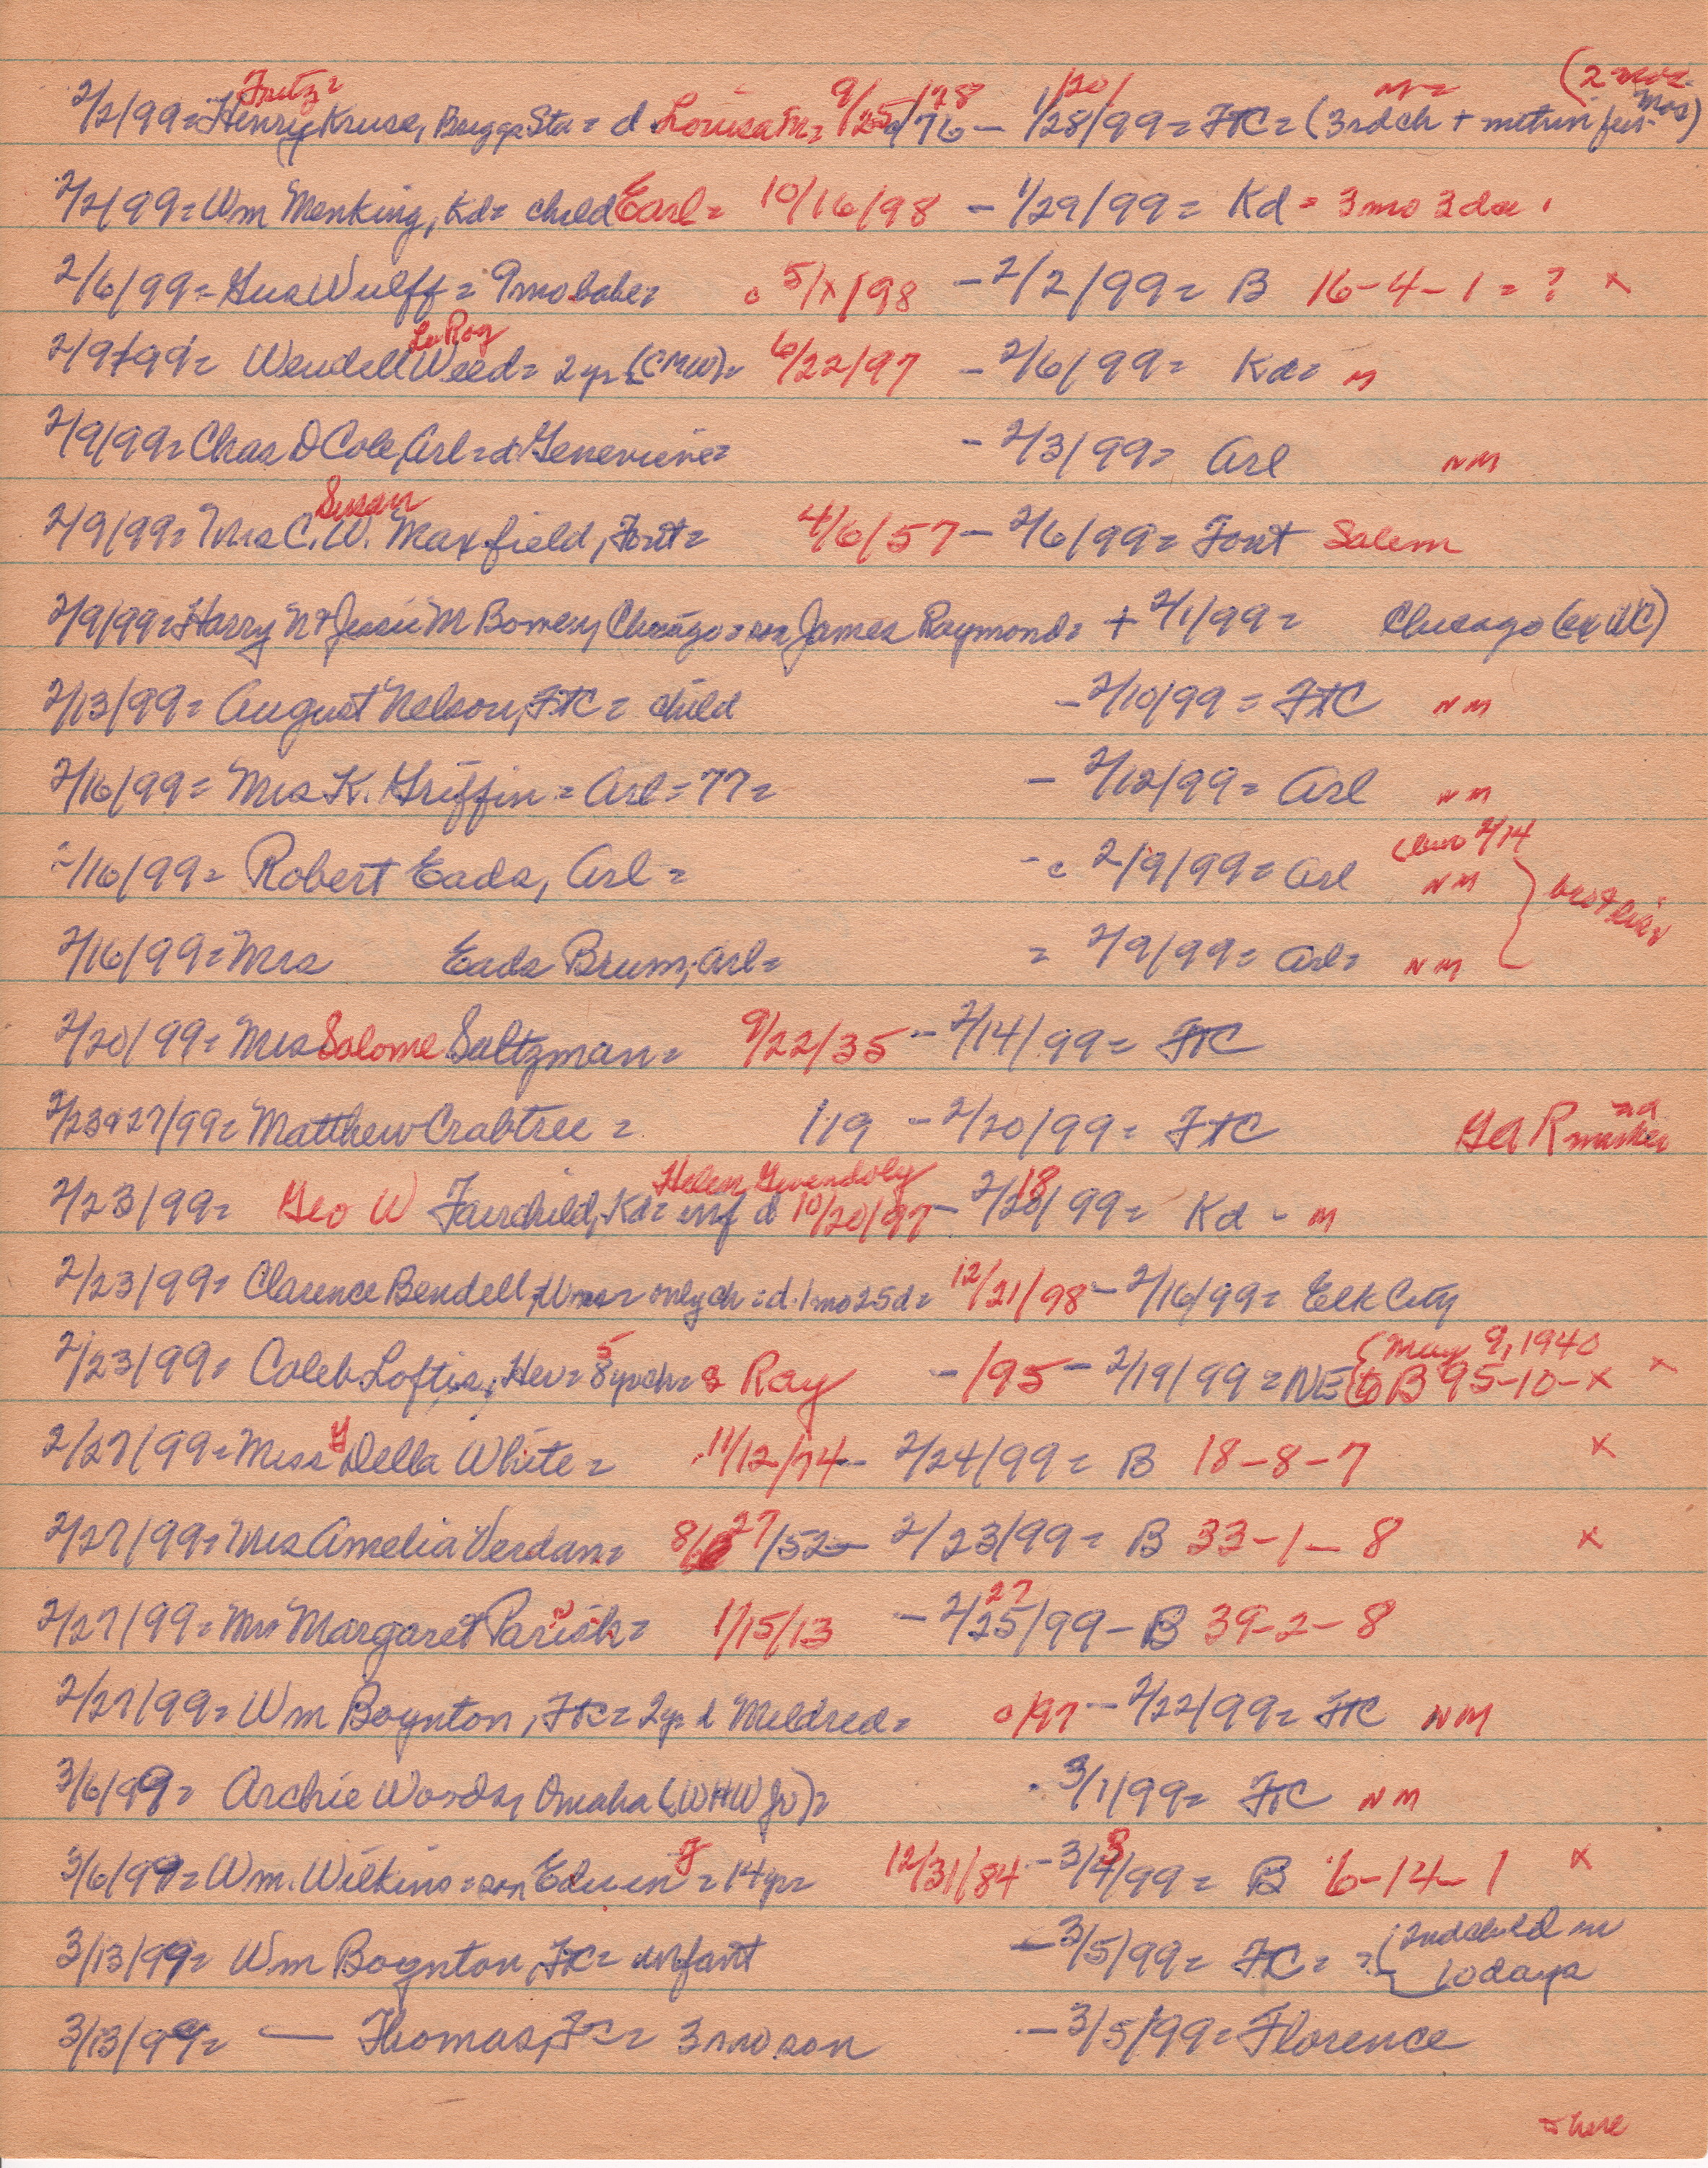 Fritz = 9/ /78 1/20/ (2 mos.
2/2/99 = Henry Kruse, Briggs Sta = d Louisa M = 9/25/76 - 1/28/99 = FtC = (3rd ch + mother in few mos)
2/2/99 = Wm Menking, Kd = child Earl = 10/16/98 - 1/29/99 = Kd = 3 mo 3 da
2/6/99 = Gus Wulff = 9 mo babe = c 5/x/98 - 2/2/99 = B 16-4-1 = ? x
LeRoy
2/9/99 = Wendell Weed = 2 yr (CMW) = 6/22/97 - 2/6/99 = Kd = M
2/9/99 = Chas D Cole, Arl = d Genevieve = - 2/3/99 = Arl NM
Susan
2/9/99 = Mrs C. W. Maxfield, Font = 4/6/57 - 2/6/99 = Font Salem
2/9/99 = Harry N + Jessie M Bowery, Chicago = son James Raymond = + 2/1/99 = Chicago (ex WC)
2/13/99 = August Nelson, FtC = child - 2/10/99 = FtC NM
2/16/99 = Mrs K. Griffin = Arl = 77 = - 2/12/99 = Arl NM
2/14
2/16/99 = Robert Eads, Arl = - c 2/9/99 = Arl NM } bro + sister
2/16/99 = Mrs Eads Brum, Arl = = 2/9/99 = Arl = NM
2/20/99 = Mrs Salome Saltzman = 9/22/35 - 2/14/99 = FtC
2/23 & 27/99 = Matthew Crabtree = 1/19 - 2/20/99 = FtC GAR marker
Helen Gwendoly 18
2/23/99 = Geo W Fairchild, Kd = inf d 10/20/97 - 2/20/99 = Kd - M
2/23/99 = Clarence Bendell, = only ch = d 1 mo 25 d = 12/21/98 - 2/16/99 = Elk City
5 (May 9, 1940
2/23/99 = Caleb Loftis, Her = 8 yr ch = s Ray - /95 - 2/19/99 = NE (to B 95-10-x x
2/27/99 = Miss Y Della White = 11/12/74 - 2/24/99 = B 18-8-7 x
2/27/99 = Mrs Amelia Verdan = 8/27/52 - 2/23/99 = B 33-1-8 x
27
2/27/99 = Mrs Margaret Parish = 1/15/13 - 2/25/99 - B 39-2-8
2/27/99 = Wm Boynton, FtC = 2 yr d Mildred = c/97 - 2/22/99 = FtC NM
3/6/99 = Archie Woods, Omaha (WHW Jr) = - 3/1/99 = FtC NM
3/6/99 = Wm. Wilkins = son Edwin J = 14 yr = 12/31/84 - 3/4/99 = B 6-14-1 x
3
3/13/99 = Wm Boynton, FtC = infant - 3/5/99 = FtC = (2nd child in
10 days
3/13/99 = — Thomas, FtC = 3 mo son - 3/5/99 = Florence
here